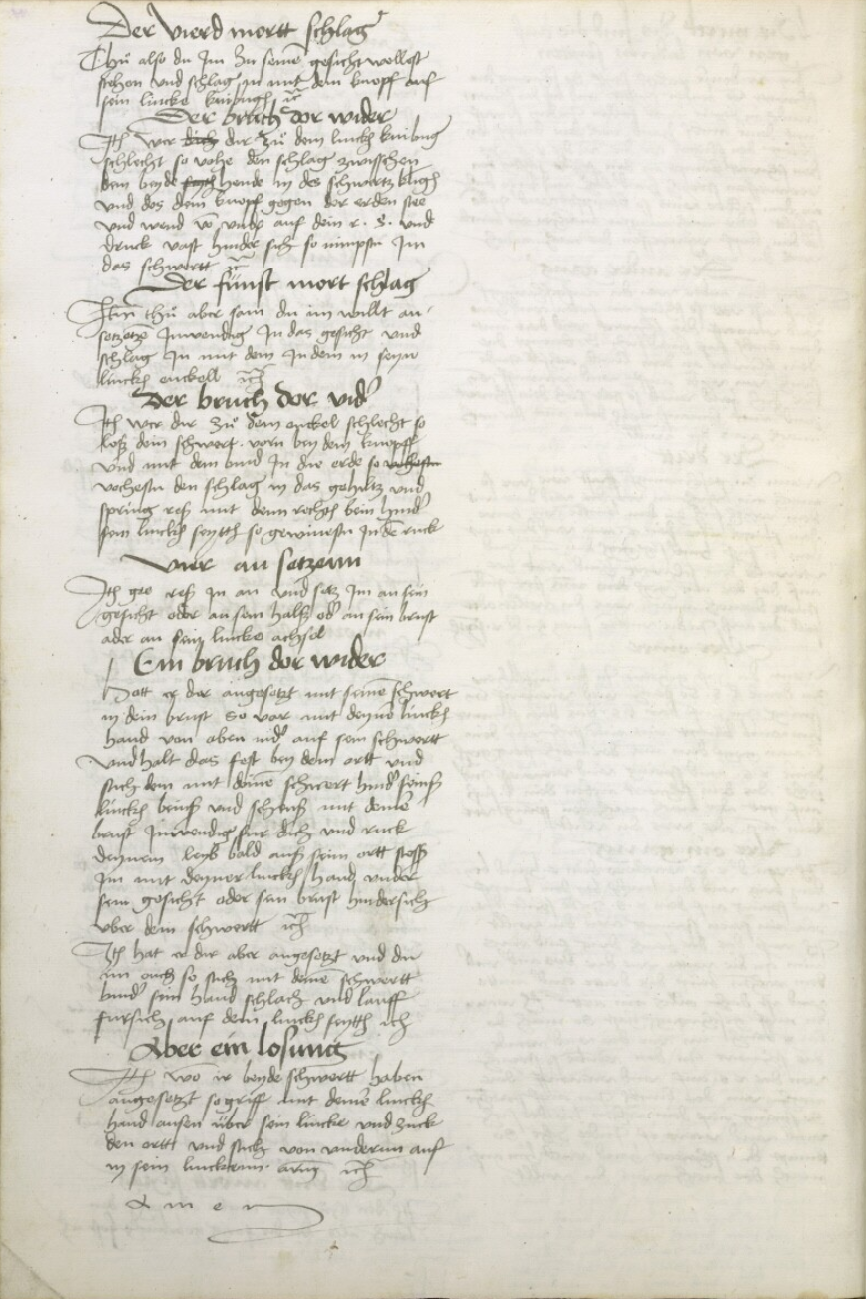 Der vierd mortt schlag
Thů also du Im zu seinē gesicht wollest
stechen vnd schlag in mit dem knopf auf
sein lincke knibugh ꝛc
Der bruch dor wider
Ith wer dich dir zů dem linckh knibug
schlecht so vohe den schlag zwisschen
dein beyde hende in des schwertz klingh
vnd das dein knopf gegen der erden stee
vnd wend vō vndē auf dein r. s. vnd
druck vast hinder sich so nimpstu Im
das schwertt ꝛc
Der fůnft mort schlag
Item thů aber sam du im willt an
setzetzē Inwendig In das gesicht vnd
schlag In mit dem In dem in seyn
linckh enckell ꝛch
Der bruch dor vidꝰ
Ith wer dir zů dem enckel schlecht so
losz dein schwert vorn bey dem knopff
vnd mit dem bind In die erde so vohestu
vochestu den schlag in das gehiltz vnd
spring resch mit deim rechth bein hindꝰ
sein linckh seytth so gewinestu In dē ruck
Vier an setzenn
Ith gee resch In an vnd setz Im an sein
gesicht oder an sein halsz odꝰ an sein brust
ader an sein lincke achsel
Ein bruch dor wider
Hatt er dir angesetzt mit seinē schwert
in dein brust so var mit deynē linckh
hand von oben nidꝰ auf sein schwertt
vnd halt das fest bey dem ortt vnd
stich dem mit deinē schwert hindꝰ seinsz
linckh beinsz vnd scheusz mit deinē
brust Inwendig fur dich vnd ruck
deynenn leyb bald ausz seim ortt stosz
Im mit deyner linckh hand vnder
sein gesicht oder sein brust hindersich
vber dem schwertt ꝛch
Ith hat er dir aber angesetzt vnd du
im auch so stich mit deinē schwertt
hindꝰ sein hand schlach vnd lauff
fursich auf dein linckh seytth ꝛch
Aber ein losung
Ith wo ir beyde schwertt haben
angesetzt so griff mit deinē linckh
hand ausen über sein lincke vnd zuck
den ortt vnd stich von vnderin auf
in sein linckenn arm ꝛch
Amen